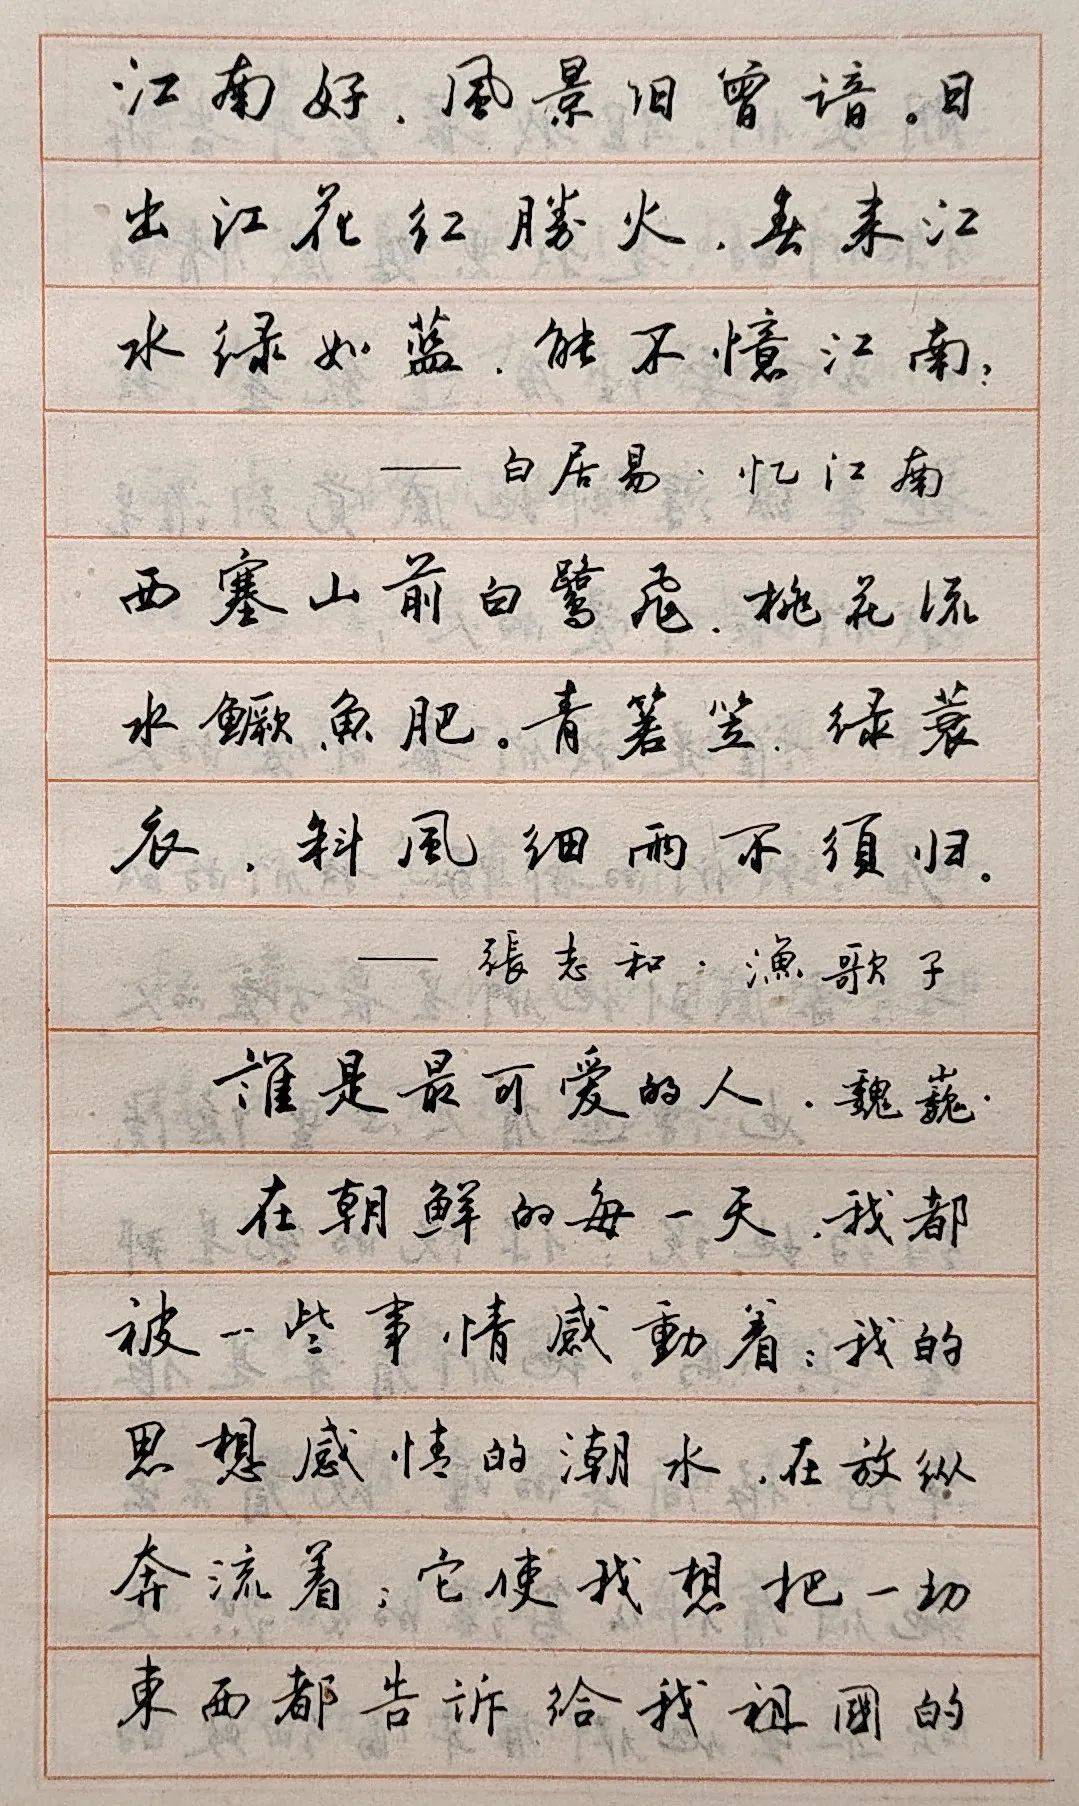 江南好，風景旧曾谙。日
出江花红勝火，春来江
水绿如蓝，能不憶江南？
——白居易·忆江南
西塞山前白鷺飛，桃花流
水鳜魚肥。青箬笠，绿蓑
衣，斜風细雨不須归。
——張志和·漁歌子
誰是最可爱的人·魏巍·
在朝鲜的每一天，我都
被一些事情感動着；我的
思想感情的潮水，在放纵
奔流着；它使我想把一切
東西都告訴给我祖國的